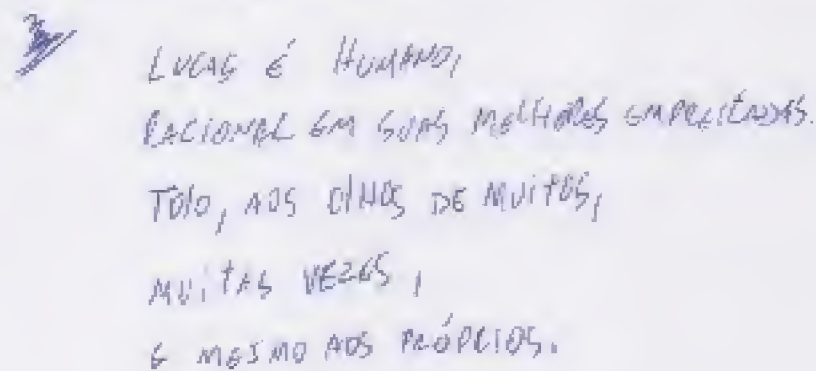 LUCAS É HUMANO,
RACIONAL EM SUAS MELHORES EMPREITADAS.
TOLO, AOS OLHOS DE MUITOS,
MUITAS VEZES,
E MESMO AOS PRÓPRIOS.